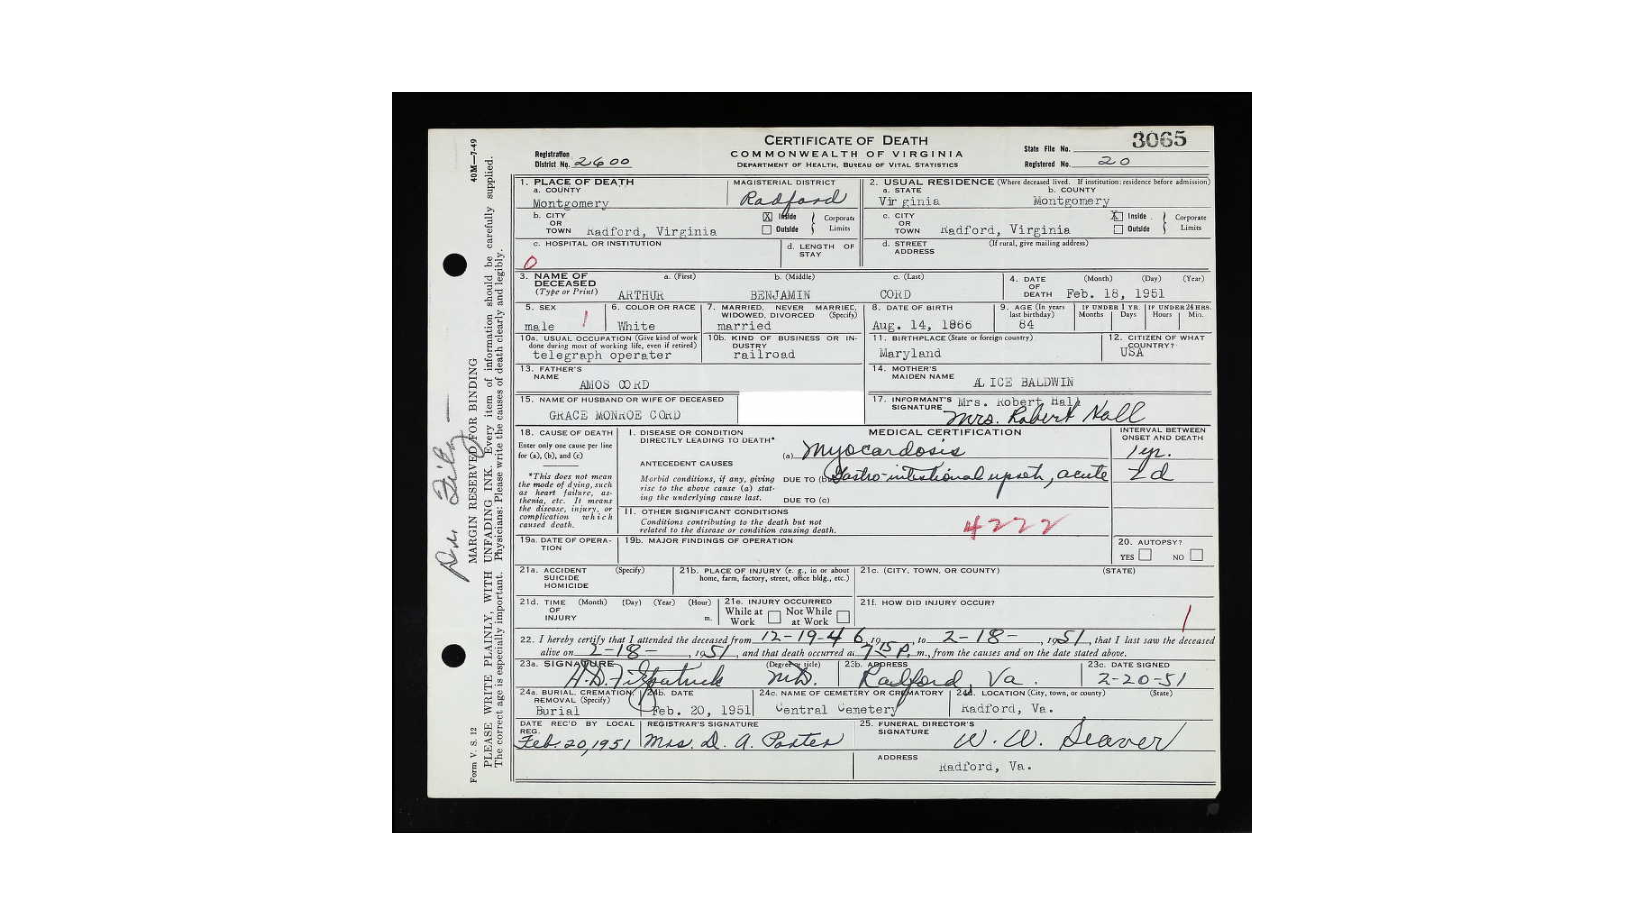 3065
CERTIFICATE OF DEATH
COMMONWEALTH OF VIRGINIA
DEPARTMENT OF HEALTH, BUREAU OF VITAL STATISTICS
Registration
District No. 2600
State File No.
Registered No. 20
40M—7-49
MARGIN RESERVED FOR BINDING
PLEASE WRITE PLAINLY, WITH UNFADING INK. Every item of information should be carefully supplied.
The correct age is especially important. Physicians: Please write the causes of death clearly and legibly.
Form V. S. 12
1. PLACE OF DEATH
a. COUNTY
Montgomery
MAGISTERIAL DISTRICT
Radford
2. USUAL RESIDENCE (Where deceased lived. If institution: residence before admission)
a. STATE b. COUNTY
Virginia Montgomery
b. CITY OR TOWN Radford, Virginia
X Inside
Outside
Corporate Limits
c. CITY OR TOWN Radford, Virginia
X Inside
Outside
Corporate Limits
c. HOSPITAL OR INSTITUTION
0
d. LENGTH OF STAY
d. STREET ADDRESS (If rural, give mailing address)
3. NAME OF DECEASED (Type or Print)
a. (First) b. (Middle) c. (Last)
ARTHUR BENJAMIN CORD
4. DATE OF DEATH (Month) (Day) (Year)
Feb. 18, 1951
5. SEX
male
6. COLOR OR RACE
White
7. MARRIED, NEVER MARRIED, WIDOWED, DIVORCED (Specify)
married
8. DATE OF BIRTH
Aug. 14, 1866
9. AGE (In years last birthday)
84
IF UNDER 1 YR. Months Days
IF UNDER 24 HRS. Hours Min.
10a. USUAL OCCUPATION (Give kind of work done during most of working life, even if retired)
telegraph operater
10b. KIND OF BUSINESS OR INDUSTRY
railroad
11. BIRTHPLACE (State or foreign country)
Maryland
12. CITIZEN OF WHAT COUNTRY?
USA
13. FATHER'S NAME
AMOS CORD
14. MOTHER'S MAIDEN NAME
ALICE BALDWIN
15. NAME OF HUSBAND OR WIFE OF DECEASED
GRACE MONROE CORD
17. INFORMANT'S SIGNATURE
Mrs. Robert Hall
Mrs. Robert Hall
18. CAUSE OF DEATH
Enter only one cause per line for (a), (b), and (c)
*This does not mean the mode of dying, such as heart failure, asthenia, etc. It means the disease, injury, or complication which caused death.
MEDICAL CERTIFICATION
INTERVAL BETWEEN ONSET AND DEATH
I. DISEASE OR CONDITION DIRECTLY LEADING TO DEATH*
(a) Myocardosis 1 yr.
ANTECEDENT CAUSES
Morbid conditions, if any, giving rise to the above cause (a) stating the underlying cause last.
DUE TO (b) Gastro-intestional upset, acute 2 d
DUE TO (c)
II. OTHER SIGNIFICANT CONDITIONS
Conditions contributing to the death but not related to the disease or condition causing death.
4222
19a. DATE OF OPERATION
19b. MAJOR FINDINGS OF OPERATION
20. AUTOPSY?
YES NO
21a. ACCIDENT SUICIDE HOMICIDE (Specify)
21b. PLACE OF INJURY (e. g., in or about home, farm, factory, street, office bldg., etc.)
21c. (CITY, TOWN, OR COUNTY) (STATE)
21d. TIME OF INJURY (Month) (Day) (Year) (Hour) m.
21e. INJURY OCCURRED
While at Work Not While at Work
21f. HOW DID INJURY OCCUR?
22. I hereby certify that I attended the deceased from 12-19-46, 19 , to 2-18-, 1951, that I last saw the deceased
alive on 2-18-, 1951, and that death occurred at 7:15 P. m., from the causes and on the date stated above.
23a. SIGNATURE (Degree or title)
H.D. Fitzpatrick MD.
23b. ADDRESS
Radford, Va.
23c. DATE SIGNED
2-20-51
24a. BURIAL, CREMATION, REMOVAL (Specify)
Burial
24b. DATE
Feb. 20, 1951
24c. NAME OF CEMETERY OR CREMATORY
Central Cemetery
24d. LOCATION (City, town, or county) (State)
Radford, Va.
DATE REC'D BY LOCAL REG.
Feb. 20, 1951
REGISTRAR'S SIGNATURE
Mrs. D. A. Porter
25. FUNERAL DIRECTOR'S SIGNATURE
W. W. Seaver
ADDRESS
Radford, Va.